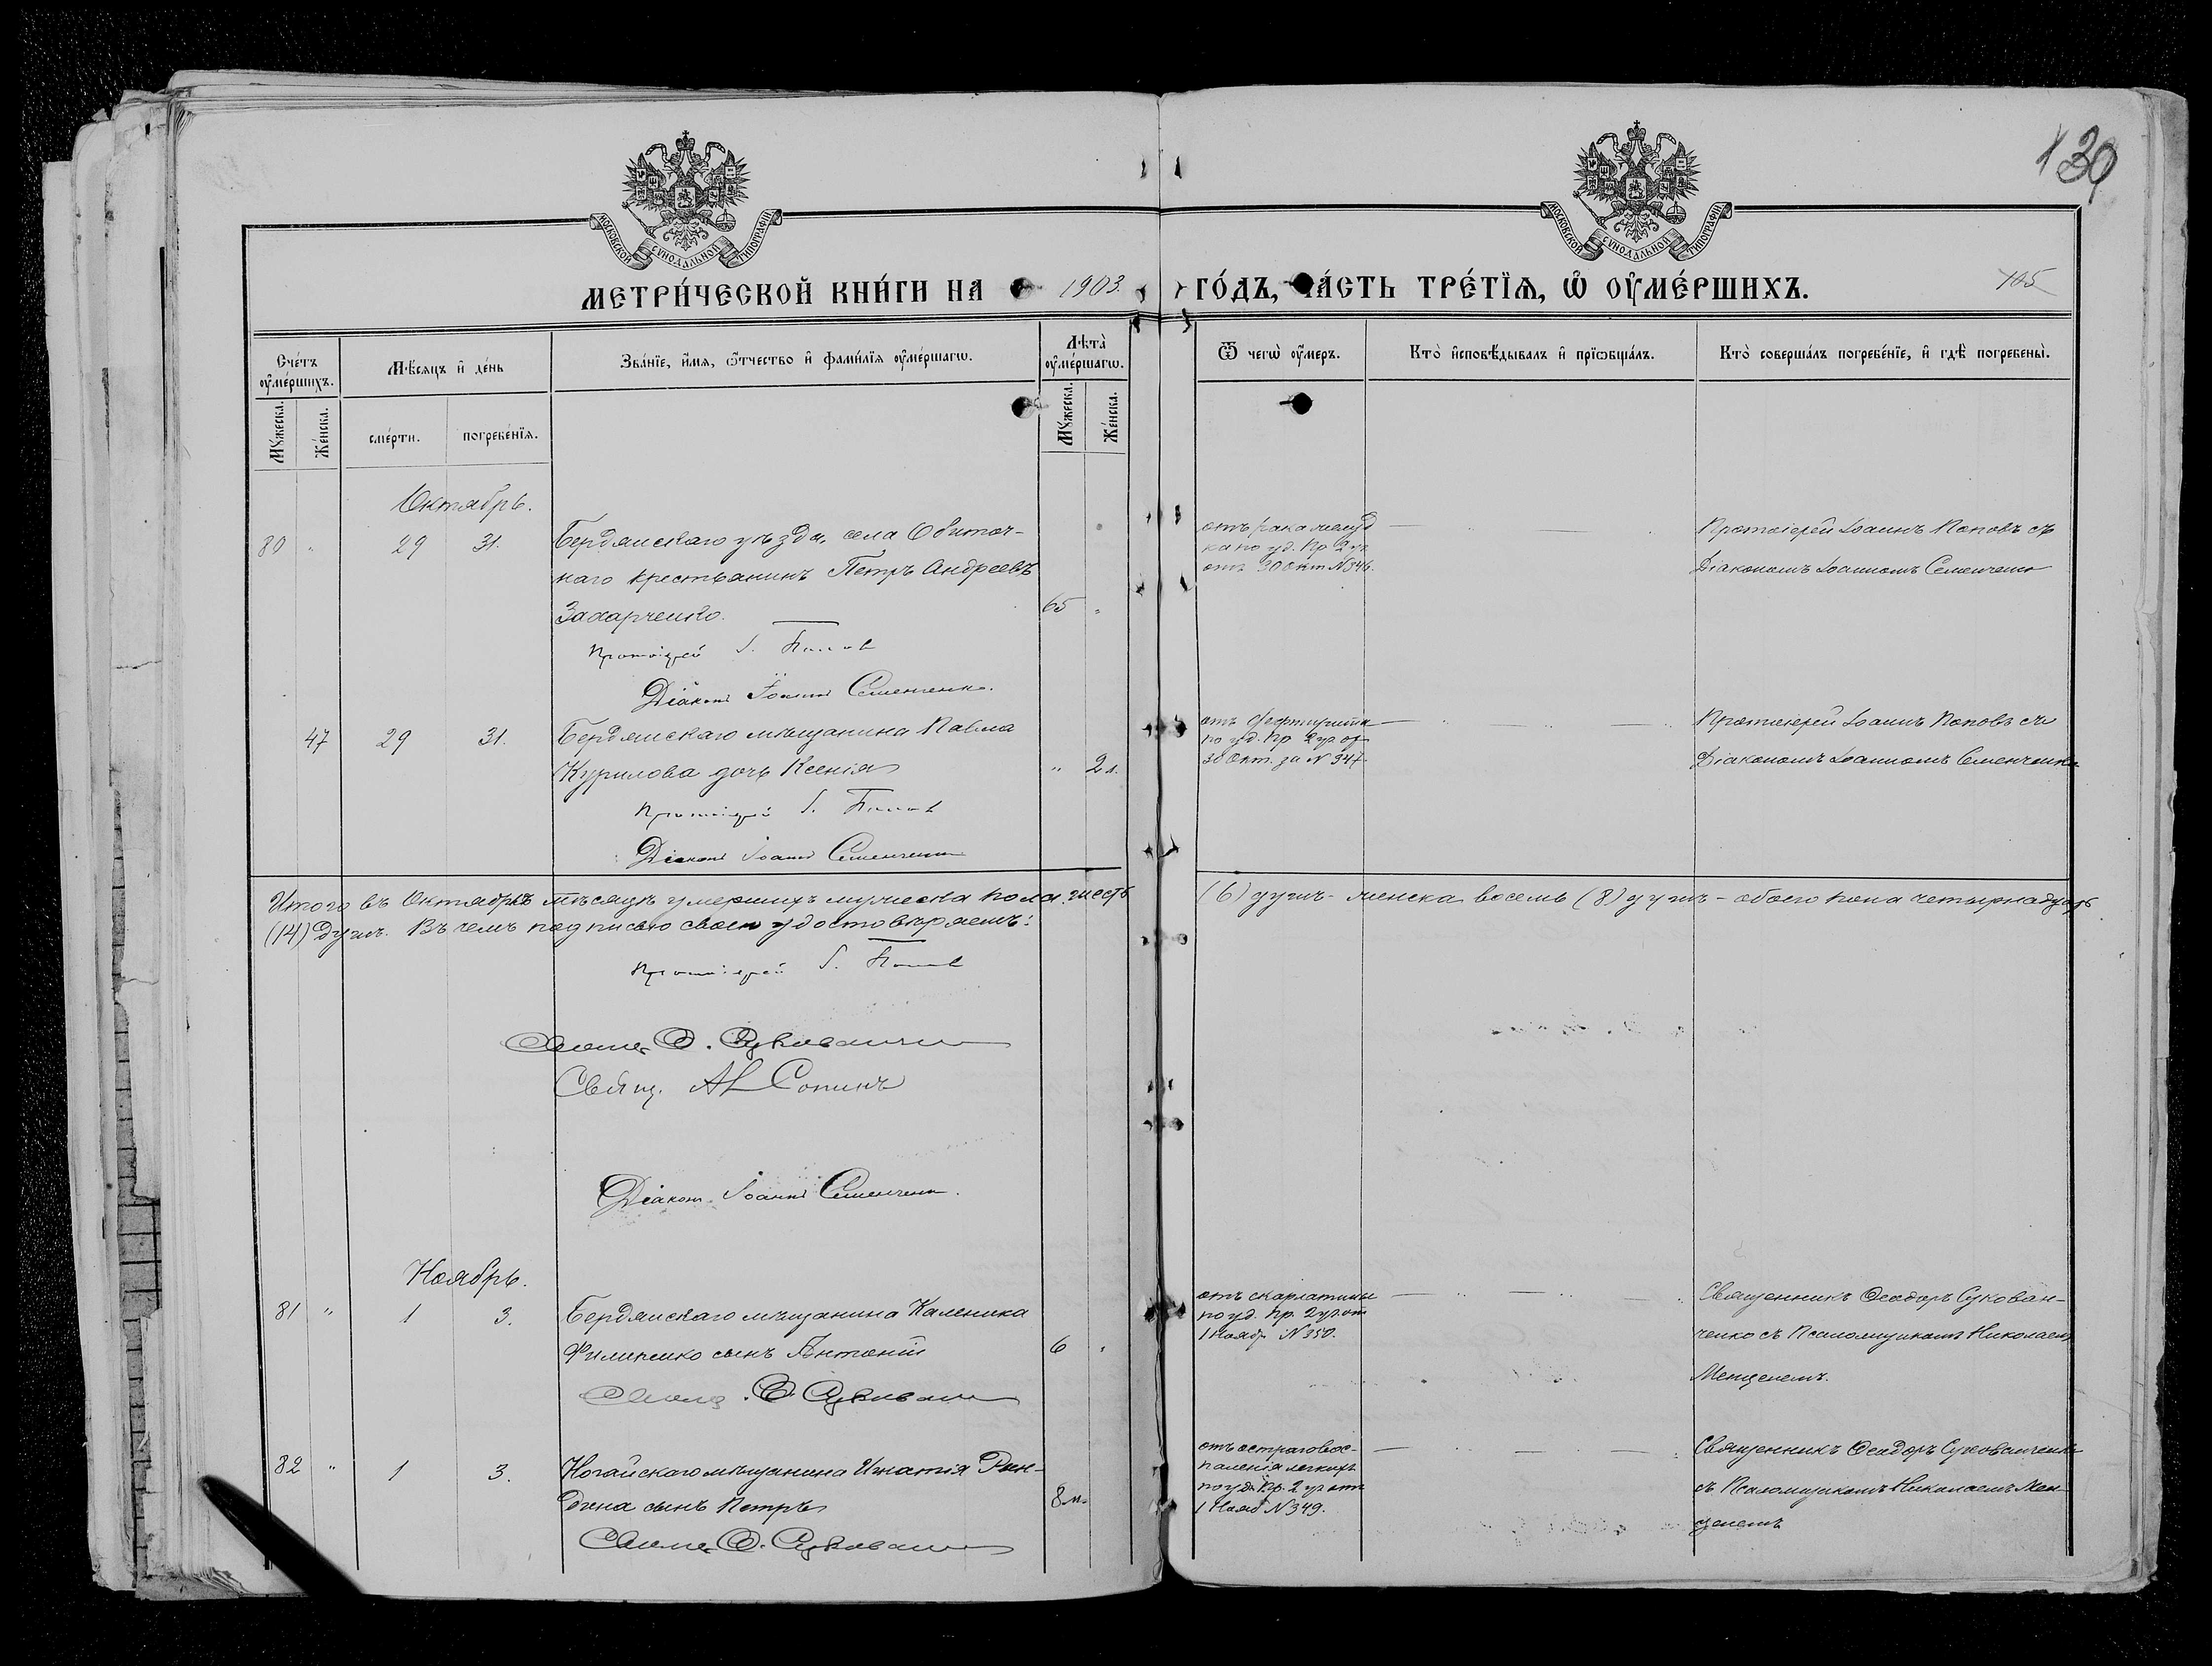 130
МОСКОВСКОЙ СУНОДАЛЬНОЙ ТИПОГРАФІИ
МОСКОВСКОЙ СУНОДАЛЬНОЙ ТИПОГРАФІИ
МЕТРИ́ЧЕСКОЙ КНИ́ГИ НА 1903. ГО́ДЪ, ЧА́СТЬ ТРЕ́ТЇѦ, Ѽ ОУ҆МЕ́РШИХЪ.
105
Сче́тъ оу҆ме́ршихъ.
Мꙋ́жеска.
Же́нска.
Мѣ́сѧцъ и҆ де́нь
сме́рти.
погребе́нїѧ.
Зва́нїе, и҆́мѧ, ѻ҆́тчество и҆ фами́лїѧ оу҆ме́ршагѡ.
Лѣ́та оу҆ме́ршагѡ.
Мꙋ́жеска.
Же́нска.
Ѿ чегѡ̀ оу҆́меръ.
Кто̀ и҆сповѣ́дывалъ и҆ прїѡбща́лъ.
Кто̀ соверша́лъ погребе́нїе, и҆ гдѣ̀ погребены̀.
Октябрь.
80 " 29 31. Бердянскаго уѣзда, села Обиточ-
наго крестьянинъ Петръ Андреевъ
Захарченко. 65 "
Протоіерей І. Поповъ
Діаконъ Іоаннъ Семенченко.
отъ рака желуд
ка по уд. Пр 2 уч.
отъ 30 Окт N 346.
Протоіерей Іоаннъ Поповъ съ
Діакономъ Іоанномъ Семенченко
47 29 31. Бердянскаго мѣщанина Павла
Курилова дочь Ксенія " 2 л.
Протоіерей І. Поповъ
Діаконъ Іоаннъ Семенченко
отъ дифтерита
по уд. Пр 2 уч. от
30 Окт. за N 347.
Протоіерей Іоаннъ Поповъ съ
Діакономъ Іоанномъ Семенченко
Итого въ Октябрѣ мѣсяцѣ умершихъ мужеска пола шесть (6) душъ - женска восемь (8) душъ - обоего пола четырнадцать
(14) душъ. Въ чемъ подписью своею удостовѣряемъ:
Протоіерей І. Поповъ
Свящ. Ѳ. Сукованченко
Свящ. Сопинъ
Діаконъ Іоаннъ Семенченко.
Ноябрь.
81 " 1 3. Бердянскаго мѣщанина Каленика
Филипенко сынъ Антоній 6 "
Свящ. Ѳ. Сукован
отъ скарлатины
по уд. Пр. 2 уч. от
1 Нояб. N 350.
Священникъ Ѳеодоръ Сукован-
ченко съ Псаломщикомъ Николаемъ
Менцелемъ.
82 " 1 3. Ногайскаго мѣщанина Игнатія Рин-
дина сынъ Петръ 8 м.
Свящ. Ѳ. Сукован
отъ остраго вос-
паленія легкихъ
по уд. Пр. 2 уч отъ
1 Нояб N 349.
Священникъ Ѳеодоръ Сукованченко
съ Псаломщикомъ Николаемъ Мен-
целемъ